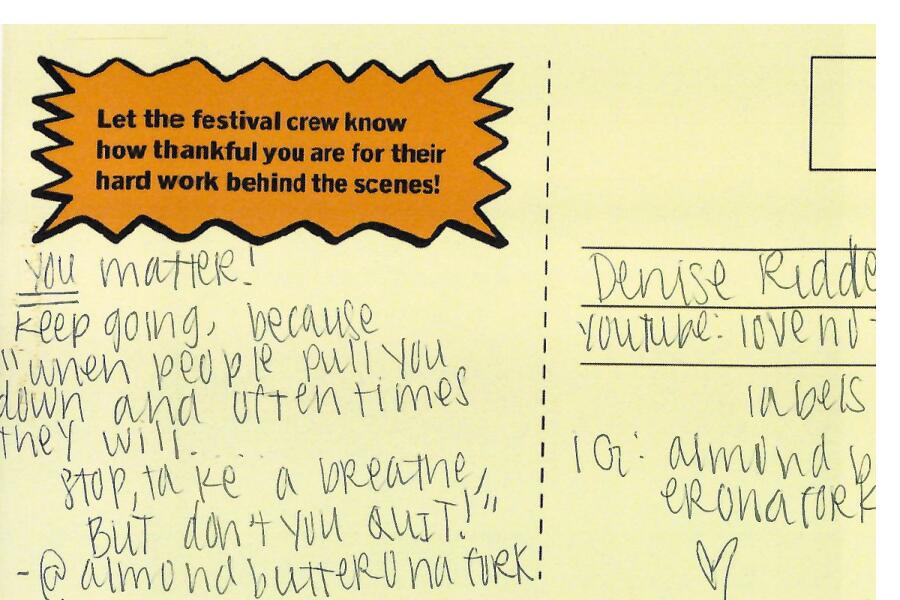 Let the festival crew know
how thankful you are for their
hard work behind the scenes!
you matter!
keep going, because
"when people pull you
down and often times
they will.....
stop, take a breathe,
BUT don't you QUIT!"
-@almondbutteronafork
Denise Ridde
youtube: love no
labels
IG: almond b
eronafork